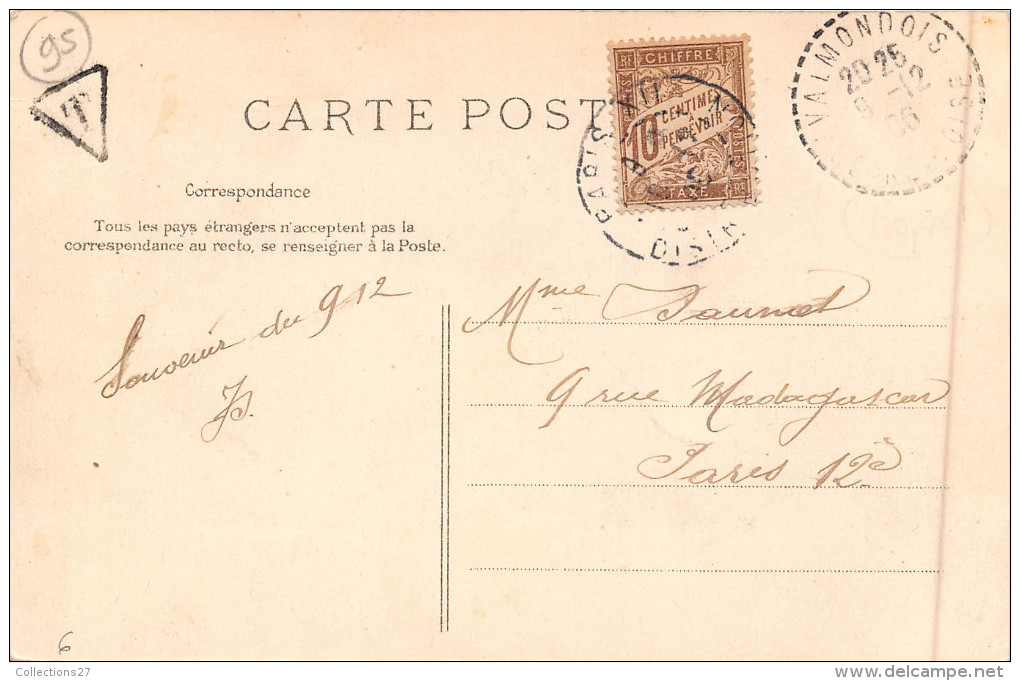 95
T
CARTE POST
CHIFFRE
10 CENTIMES
À
PERCEVOIR
POSTES
TAXE
RF
PARIS XII
DISTR
VALMONDOIS
20 25
9 -12
06
Correspondance
Tous les pays étrangers n'acceptent pas la
correspondance au recto, se renseigner à la Poste.
Souvenir du 9 12
Mme
9 rue Madagascar
Paris 12e
6
Collections27
delcampe.net